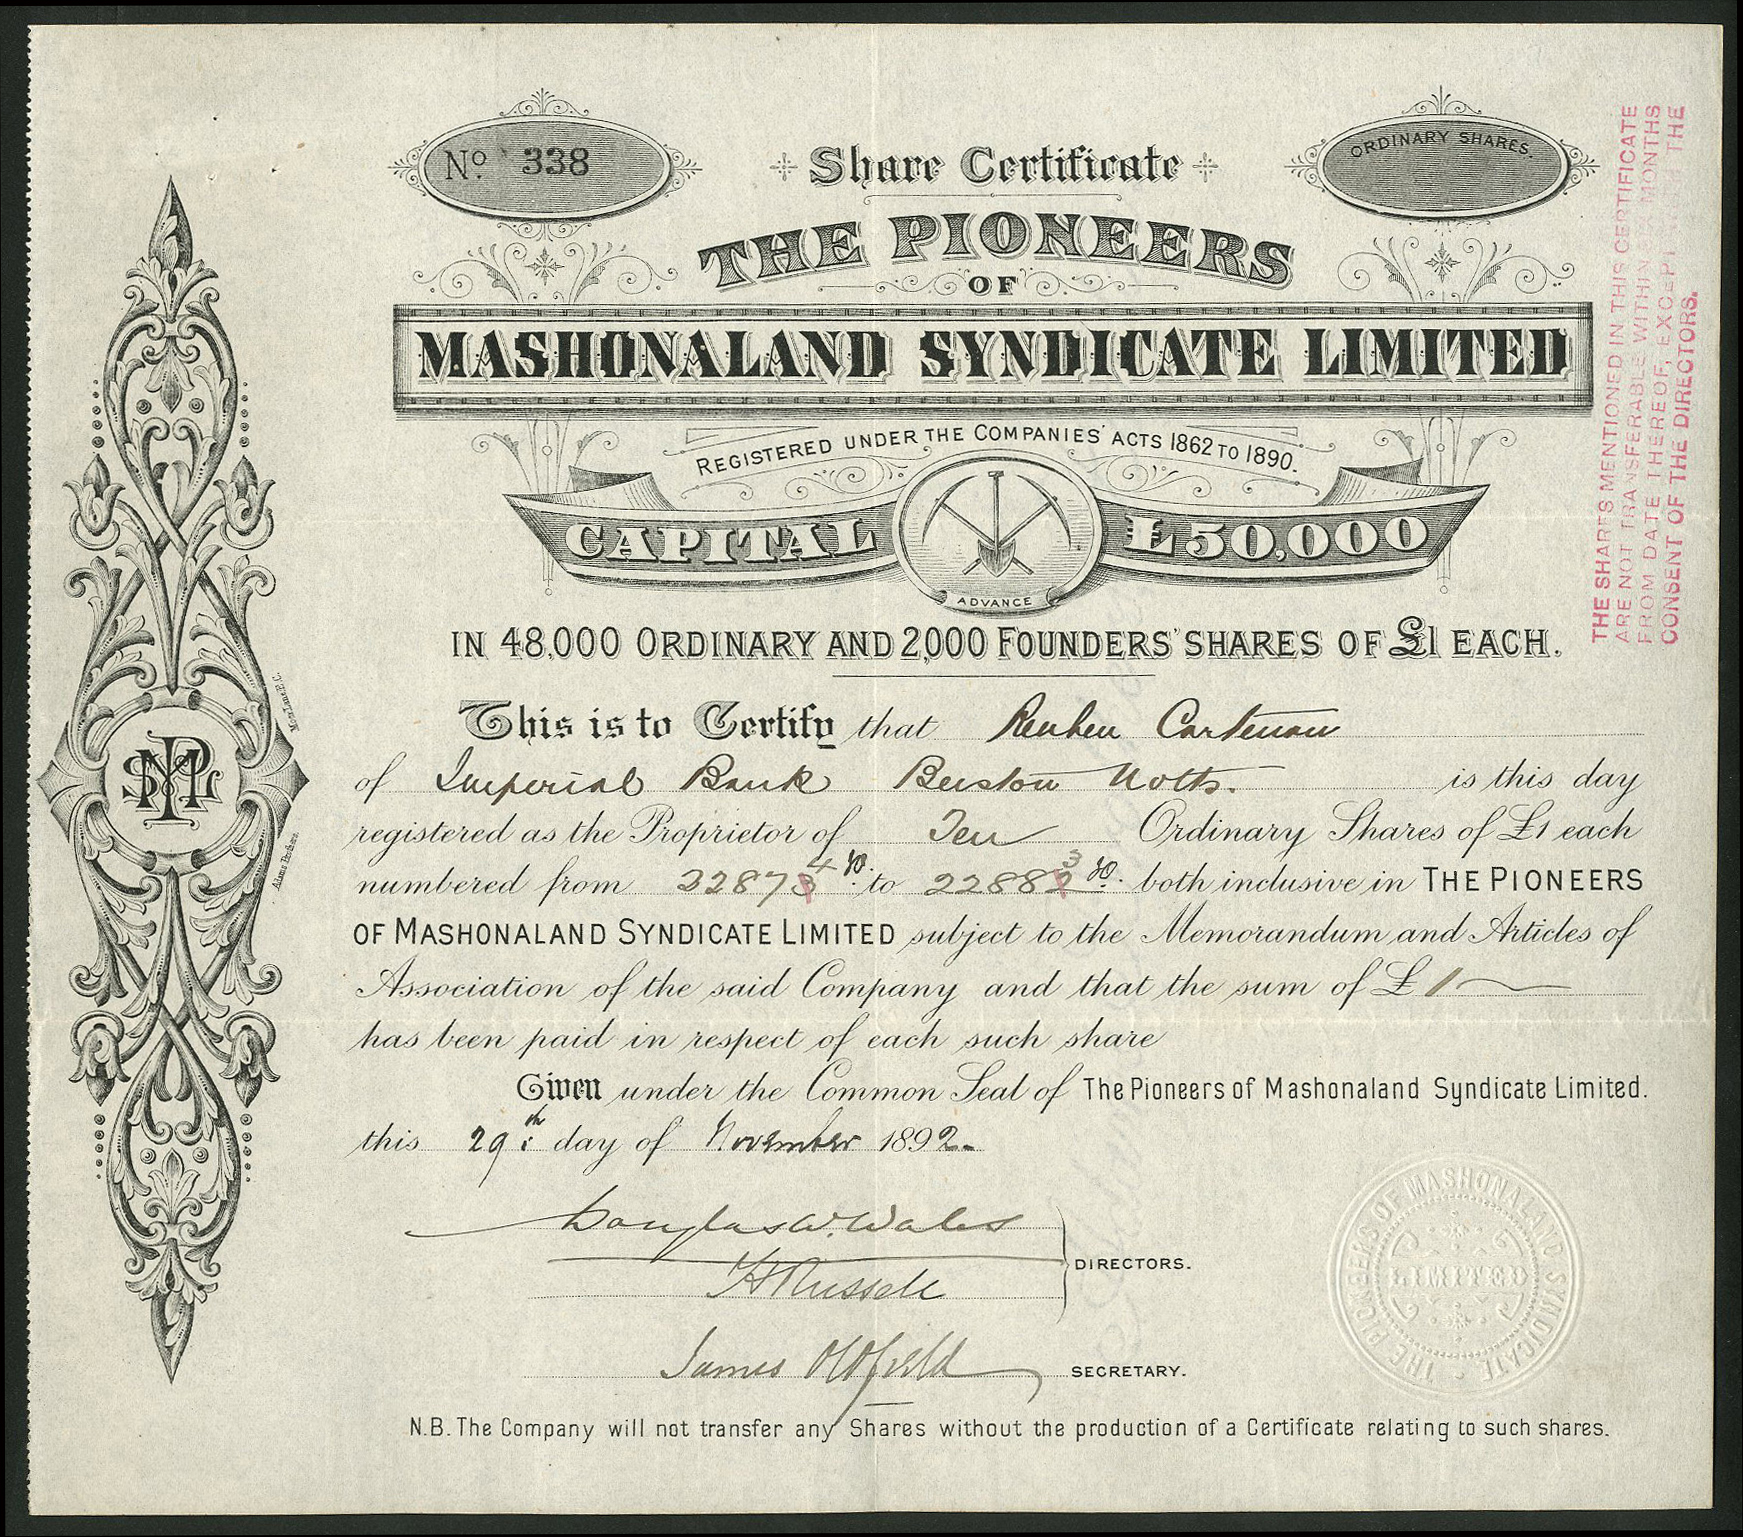 No. 338
Share Certificate
ORDINARY SHARES.
THE PIONEERS
OF
MASHONALAND SYNDICATE LIMITED
REGISTERED UNDER THE COMPANIES' ACTS 1862 TO 1890.
CAPITAL £50,000
ADVANCE
IN 48,000 ORDINARY AND 2,000 FOUNDERS' SHARES OF £1 EACH.
This is to Certify that Reuben
of Imperial Bank Beeston Notts. is this day
registered as the Proprietor of Ten Ordinary Shares of £1 each
numbered from to both inclusive in THE PIONEERS
OF MASHONALAND SYNDICATE LIMITED subject to the Memorandum and Articles of
Association of the said Company and that the sum of £ 1
has been paid in respect of each such share
Given under the Common Seal of The Pioneers of Mashonaland Syndicate Limited.
this 29th day of November 1892.
Douglas W. Wales
H Russell
DIRECTORS.
James Oldfield
SECRETARY.
N.B. The Company will not transfer any Shares without the production of a Certificate relating to such shares.
THE SHARES MENTIONED IN THIS CERTIFICATE
ARE NOT TRANSFERABLE WITHIN MONTHS
FROM DATE THEREOF, EXCEPT THE
CONSENT OF THE DIRECTORS.
THE PIONEERS OF MASHONALAND SYNDICATE
LIMITED